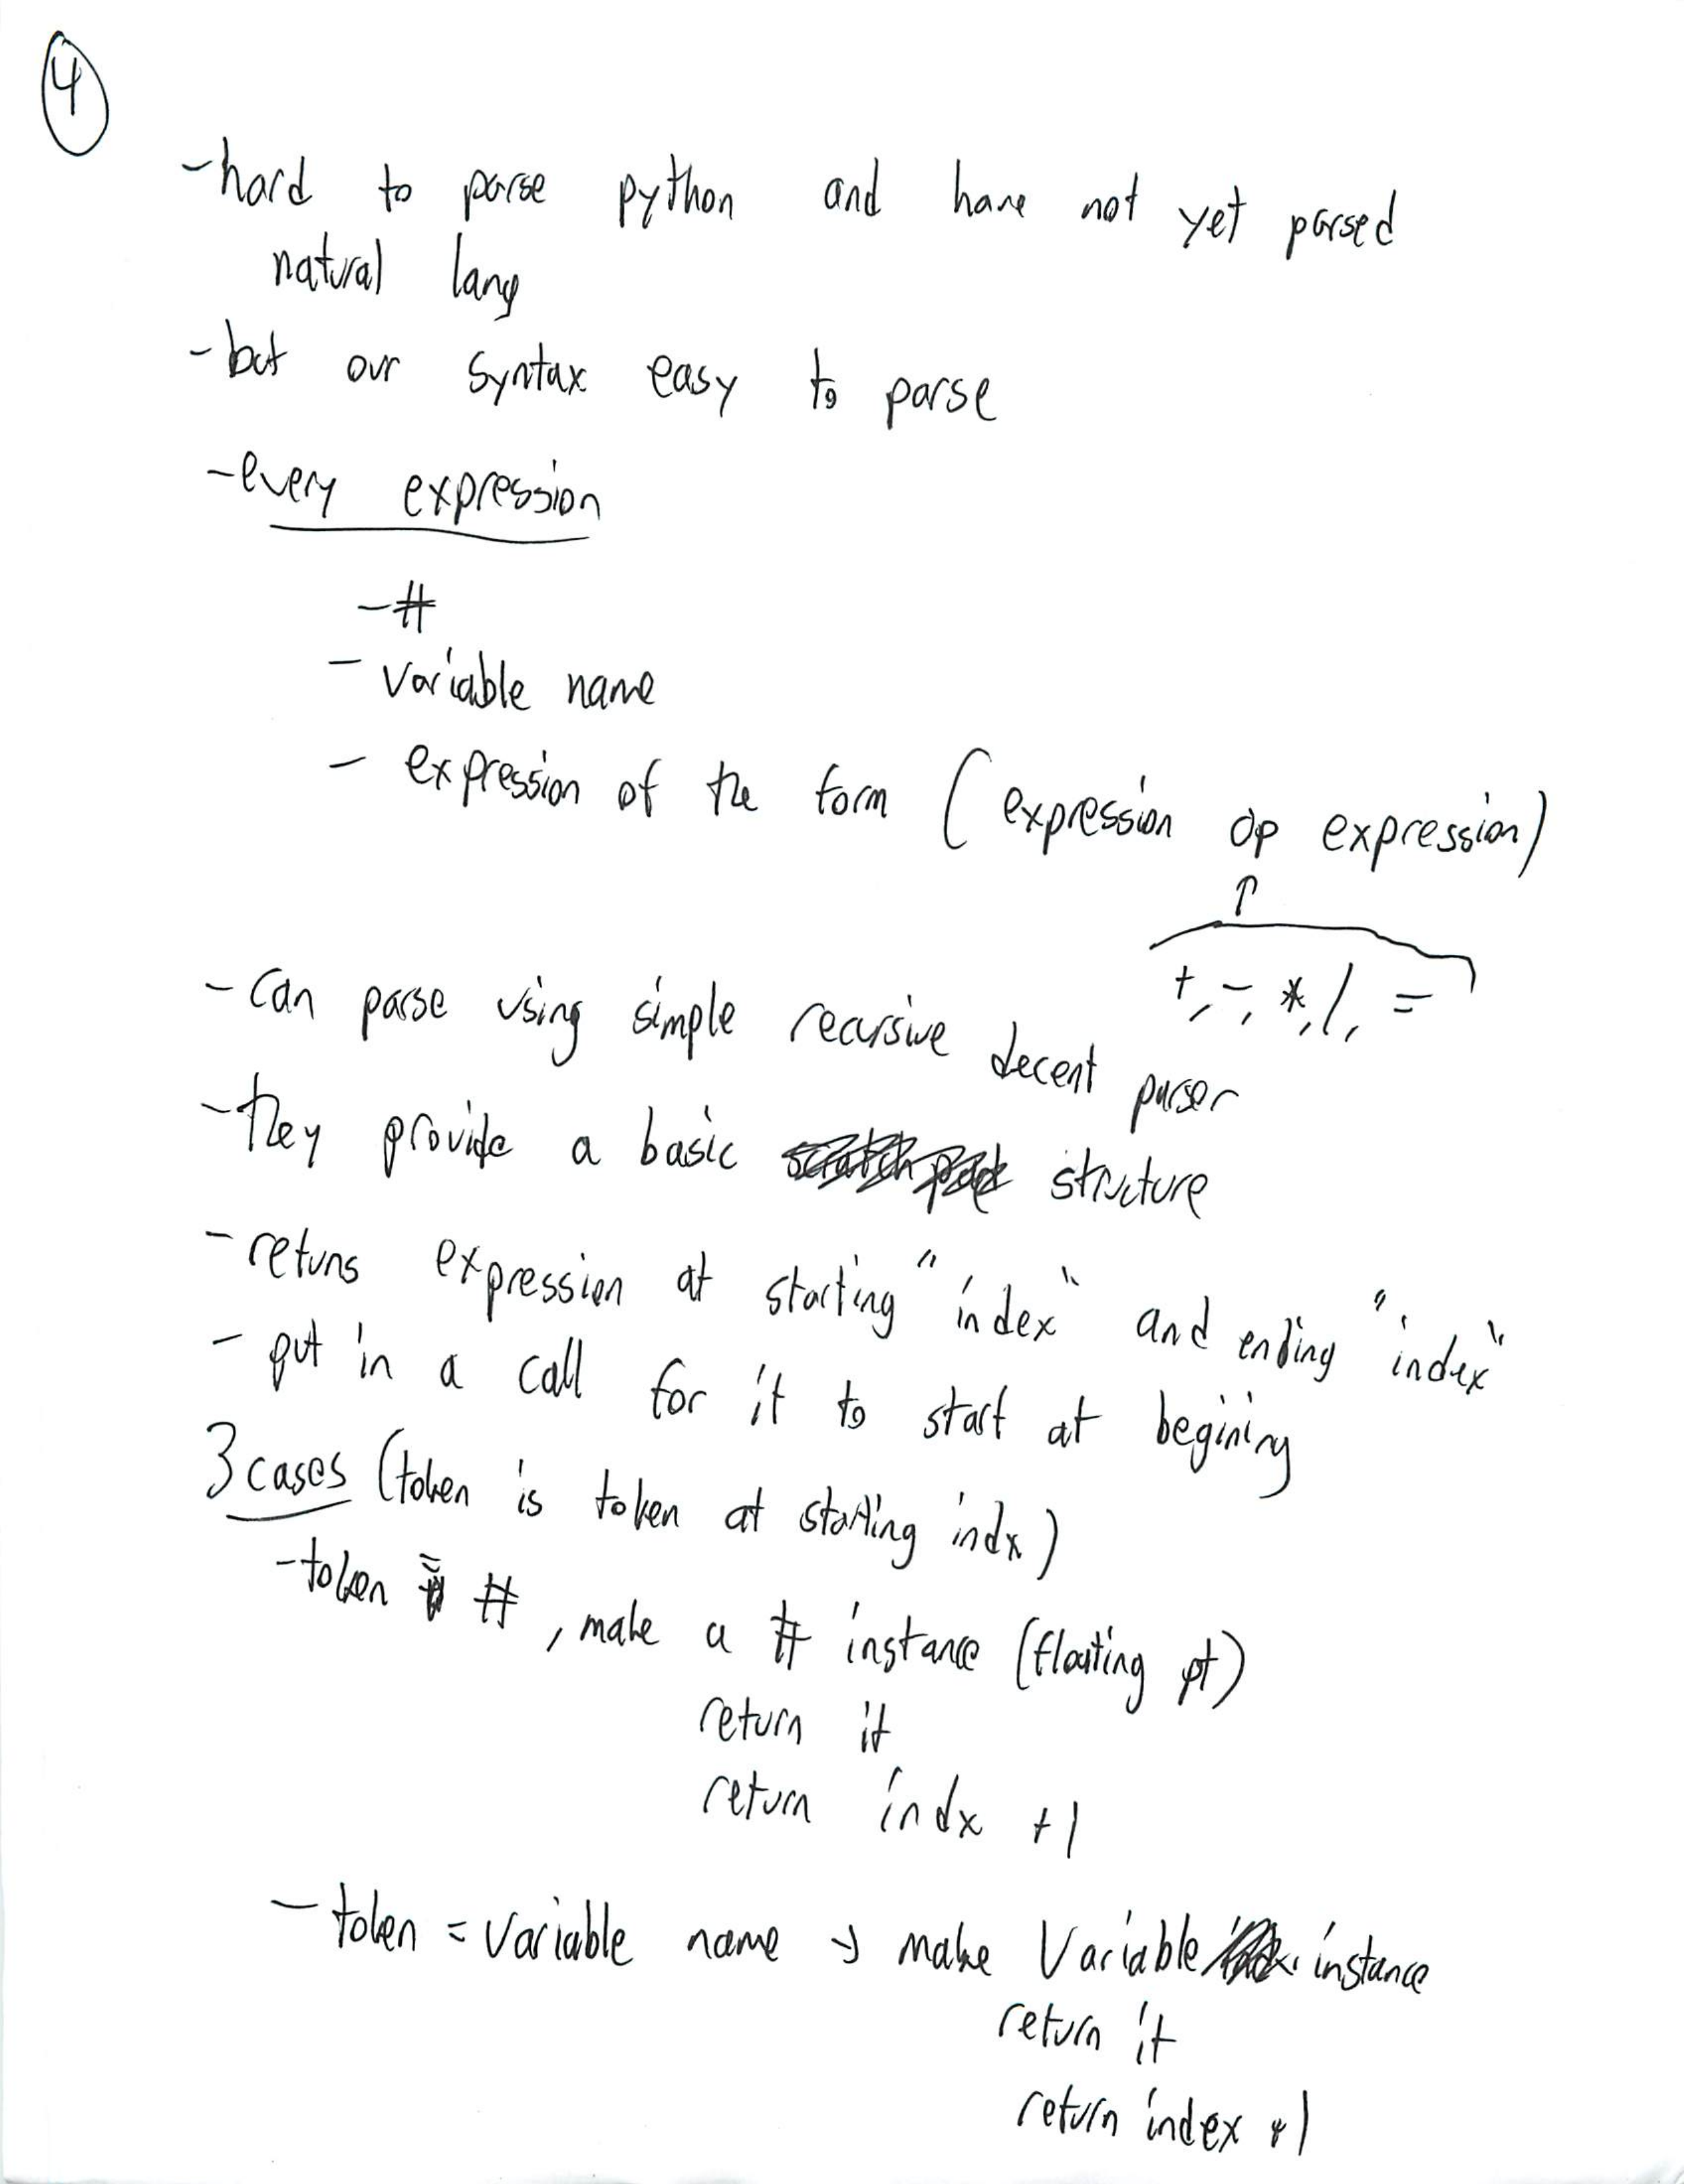 4
-hard to parse python and have not yet parsed
natural lang
-but our syntax easy to parse
-every expression
-#
- variable name
- expression of the form (expression op expression)
+, -, *, /, =
-can parse using simple recursive decent parser
-they provide a basic structure
-retuns expression at starting "index" and ending "index"
- put in a call for it to start at begining
3 cases (token is token at starting indx)
-token = #, make a # instance (floating pt)
return it
return indx +1
-token = variable name → make Variable instance
return it
return index +1